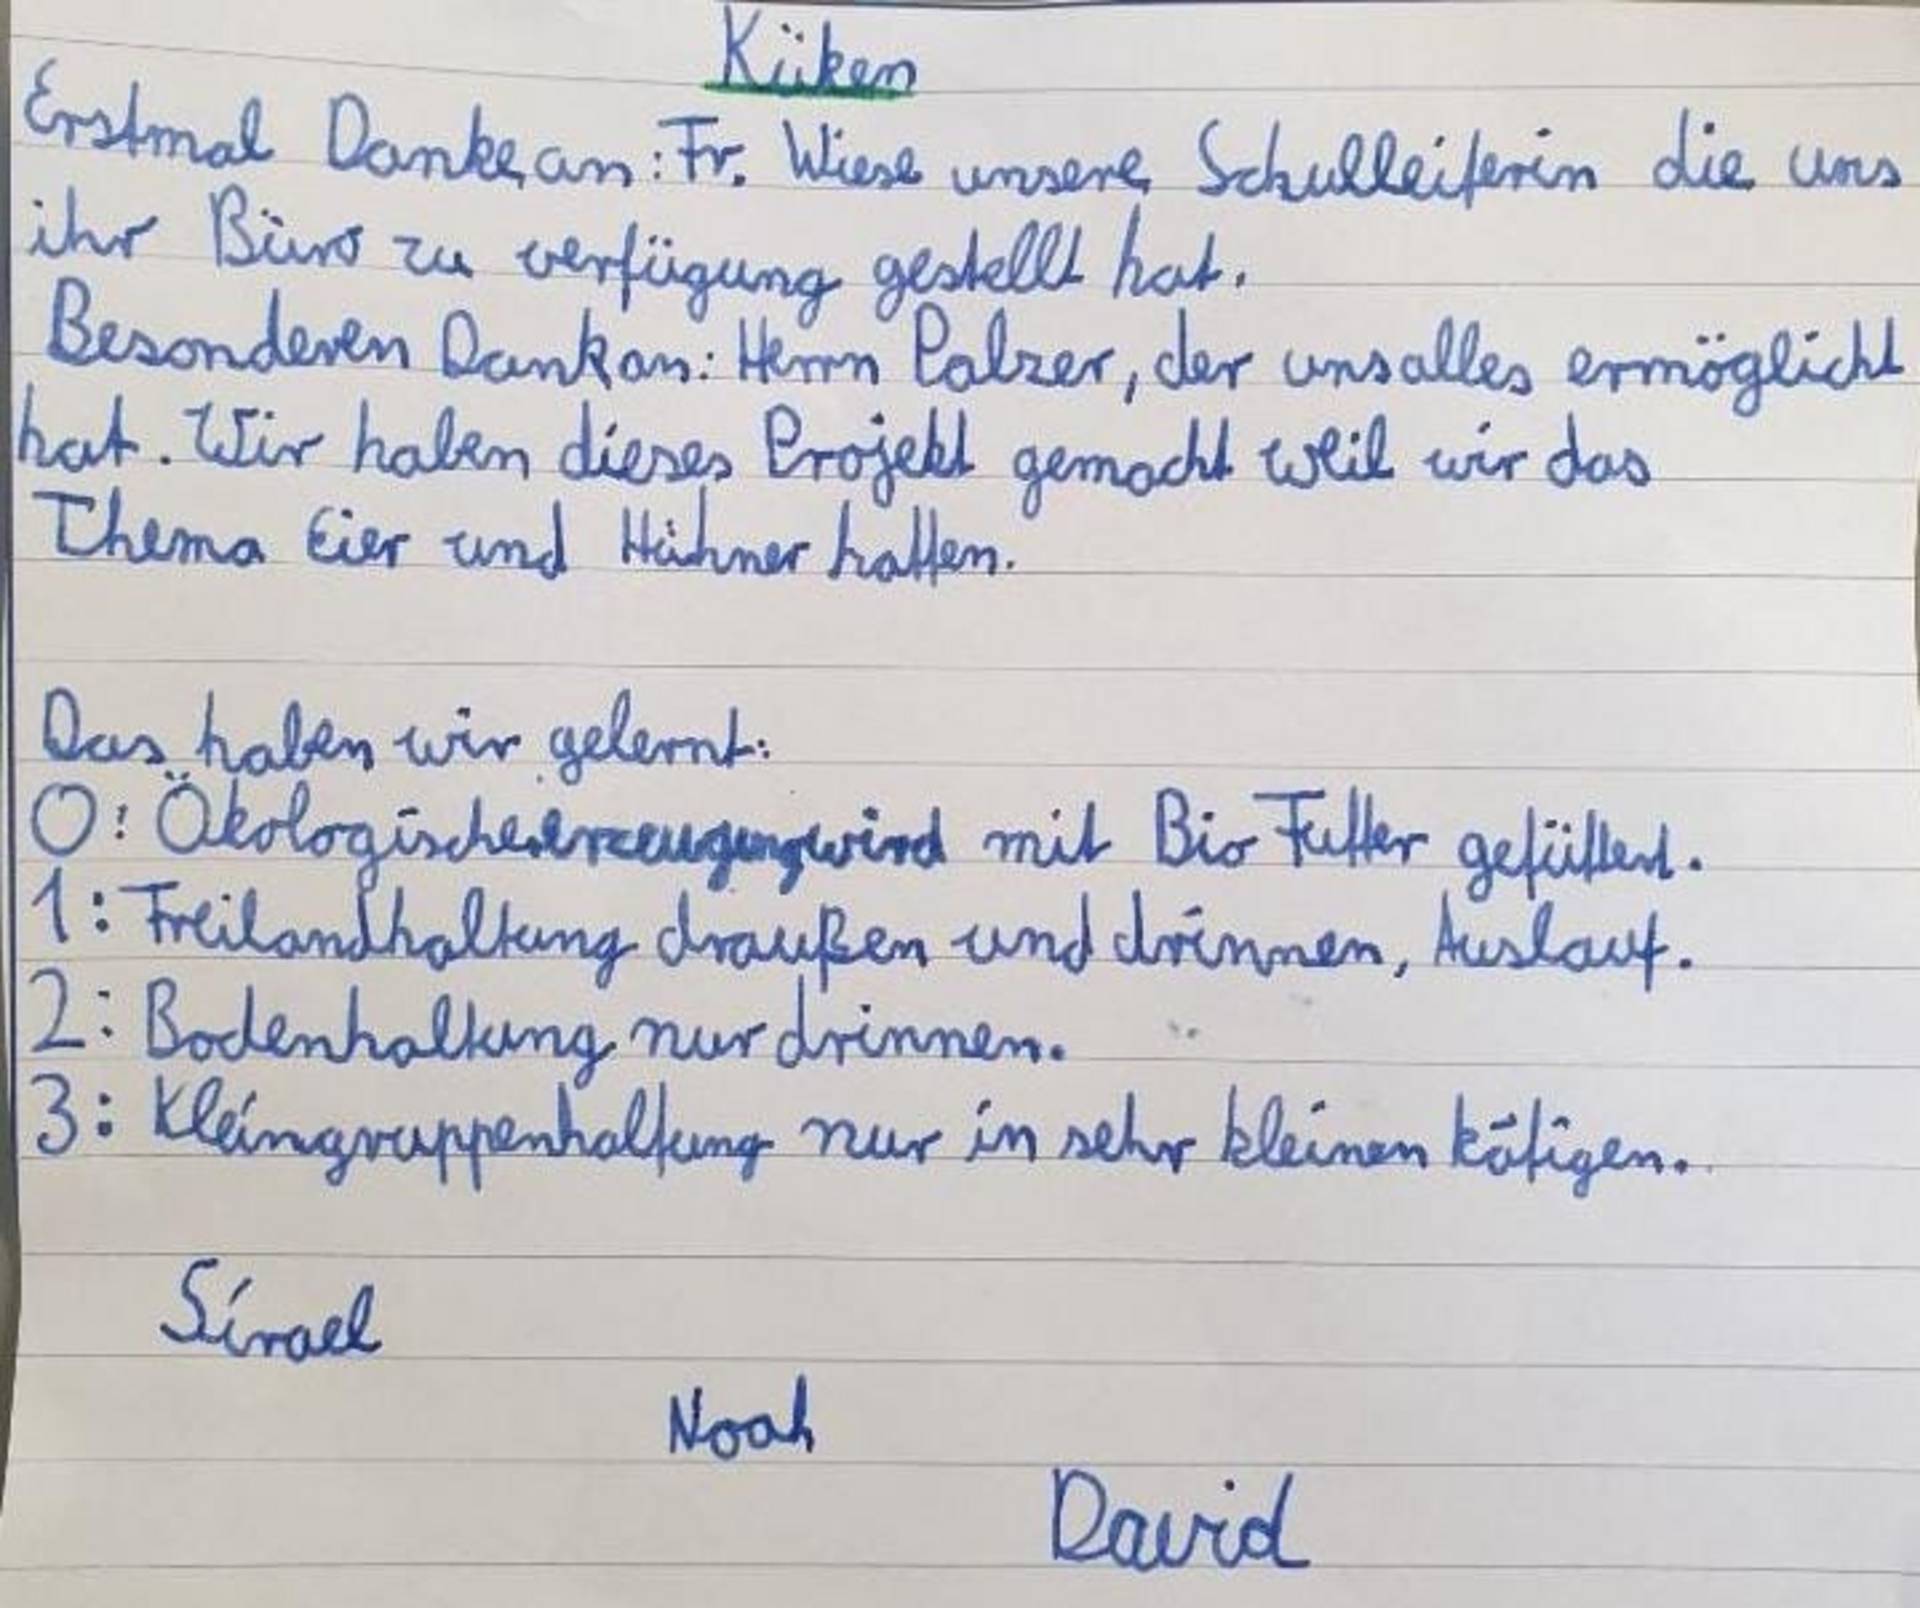 Küken
Erstmal Danke an: Fr. Wiese unsere Schulleiterin die uns
ihr Büro zu verfügung gestellt hat.
Besonderen Dank an: Herrn Palzer, der uns alles ermöglicht
hat. Wir haben dieses Projekt gemacht weil wir das
Thema Eier und Hühner hatten.
Das haben wir gelernt:
0: Ökologischeerzeugung wird mit Bio Futter gefüttert.
1: Freilandhaltung draußen und drinnen, Auslauf.
2: Bodenhaltung nur drinnen.
3: Kleingruppenhaltung nur in sehr kleinen kätigen.
Sirael
Noah
David